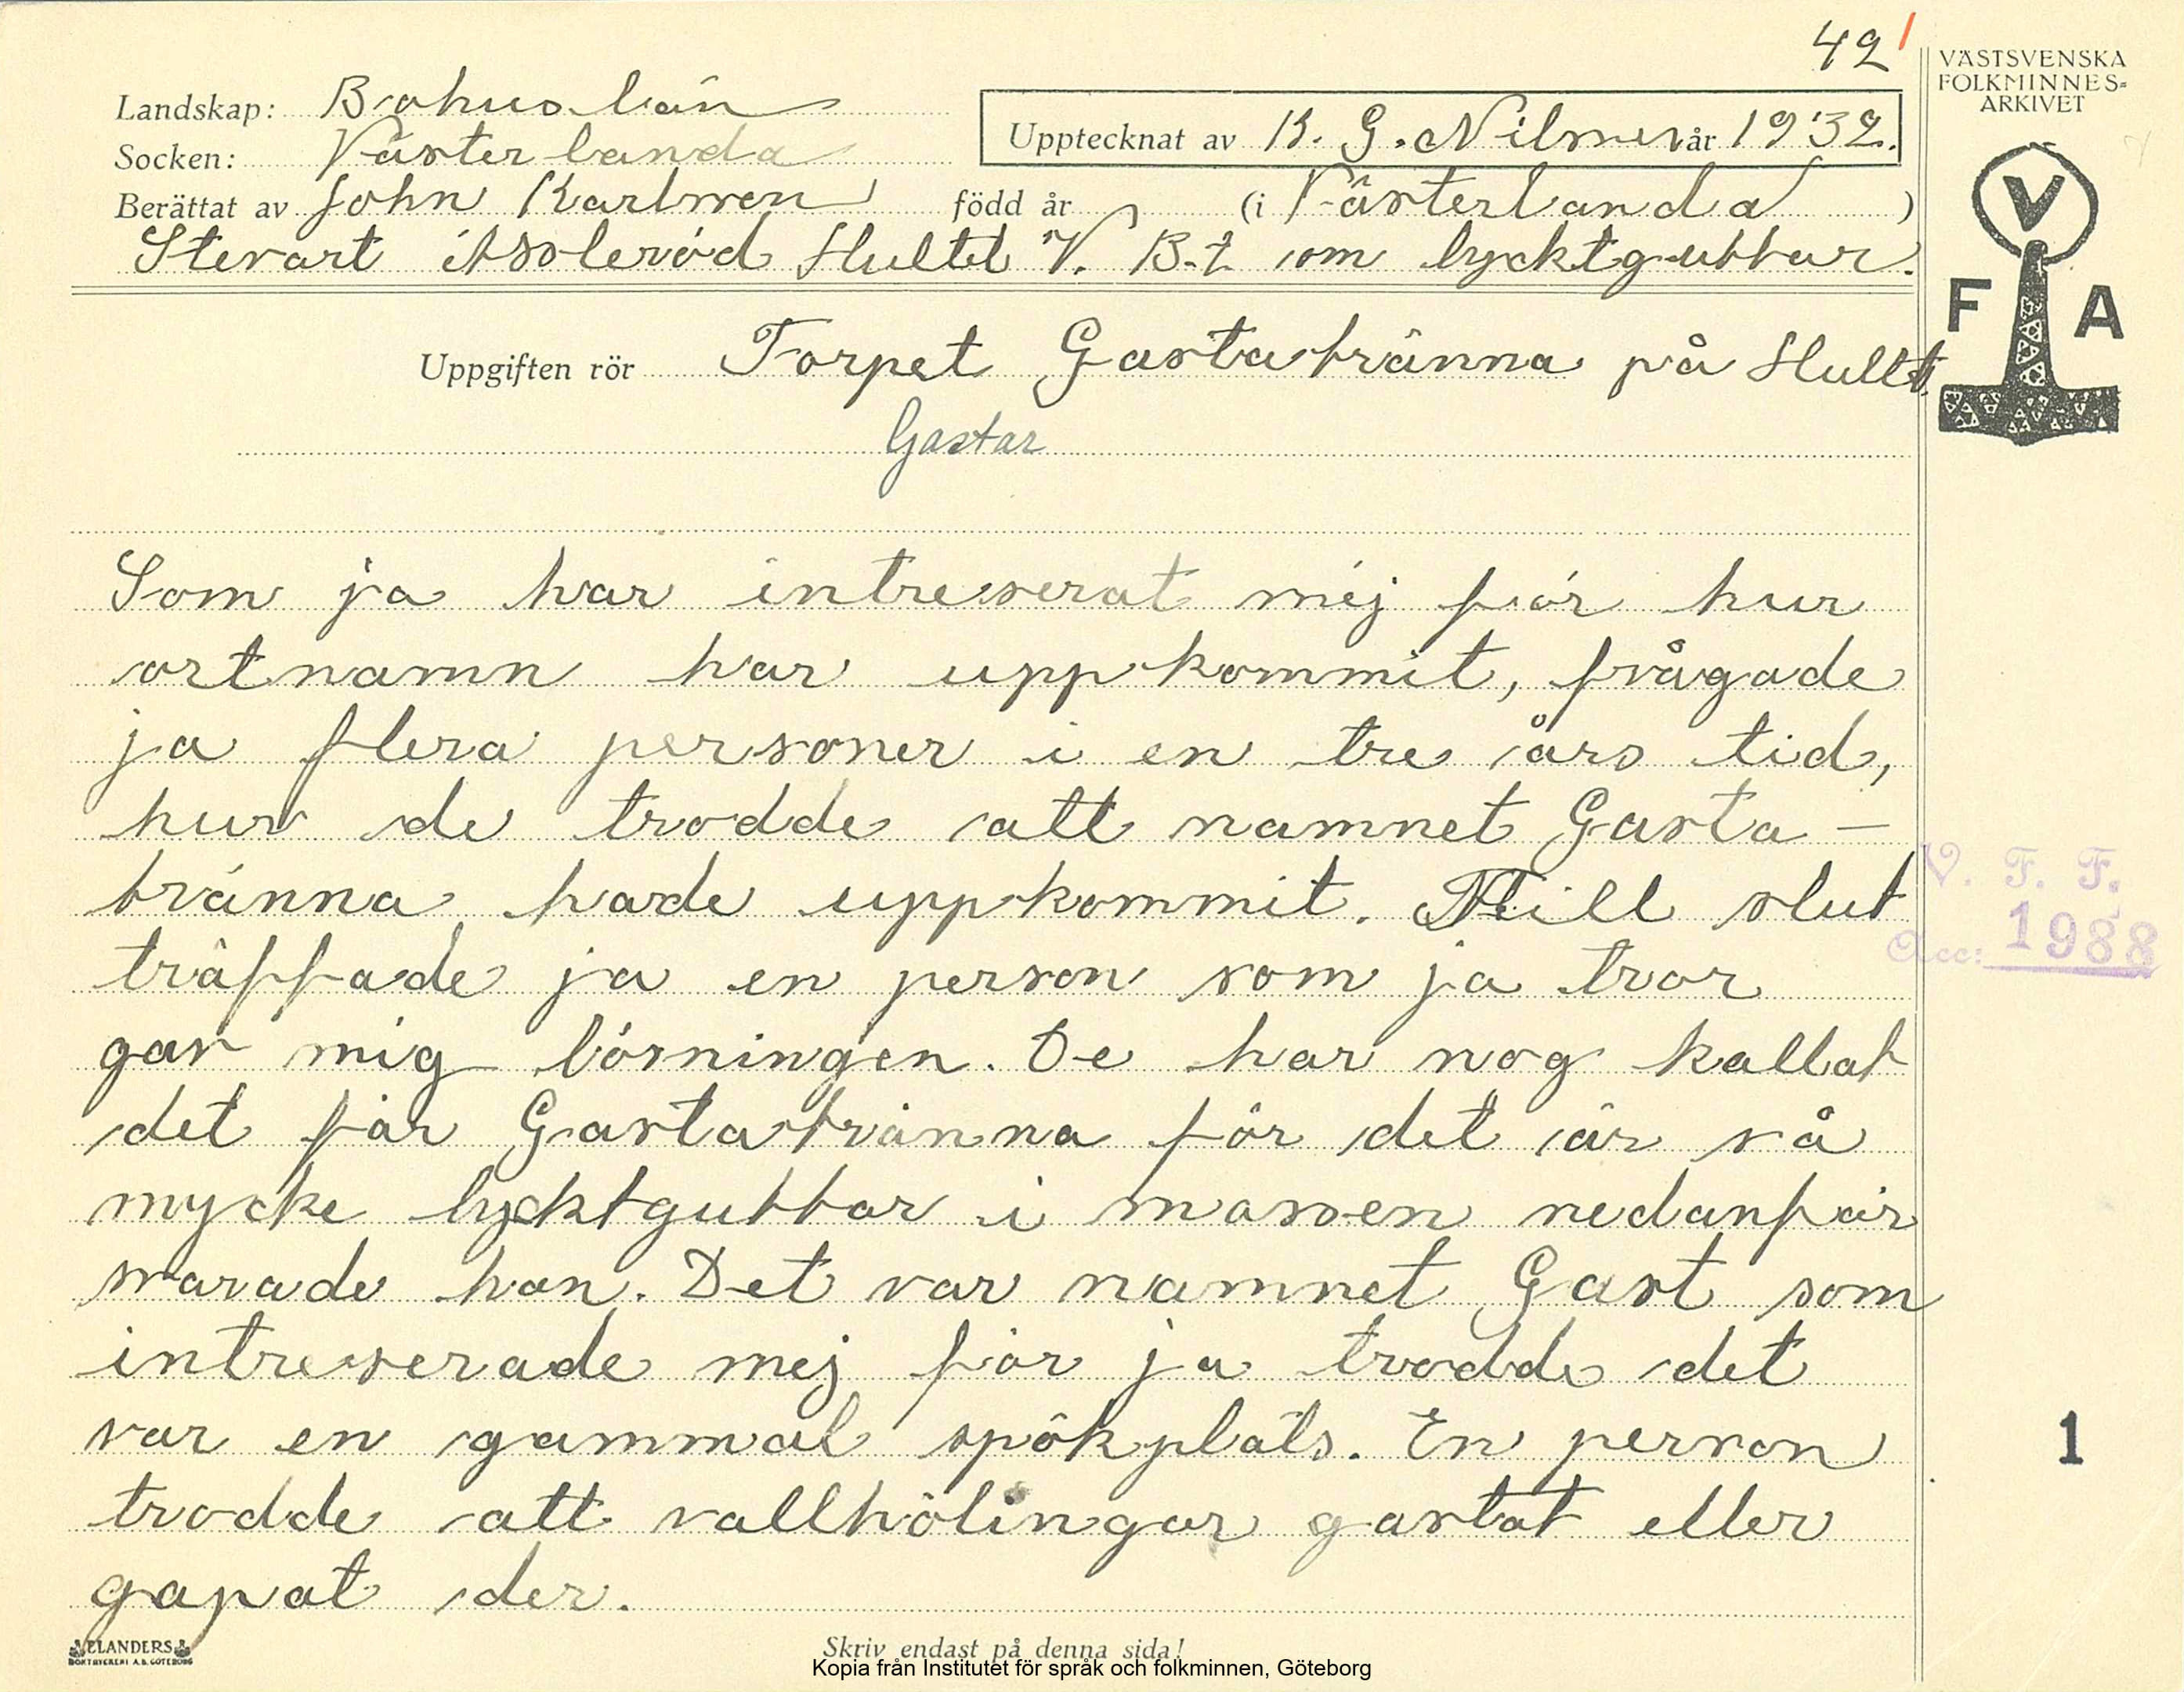 42
VÄSTSVENSKA
FOLKMINNES-
ARKIVET
Landskap: Bohuslän
Socken: Västerlanda
Upptecknat av K. G. Nilsson år 1932.
Berättat av John Karlsson född år (i Västerlanda)
Hultet V. B-t om lycktgubbar.
V
F A
Uppgiften rör Torpet Gastabränna på Hultet
Gastar
Som ja har intresserat mej för hur
ortnamn har uppkommit, frågade
ja flera personer i en tre års tid,
hur de trodde att namnet Gasta-
bränna hade uppkommit. Till slut
träffade ja en person som ja tror
gav mig lösningen. De har nog kallat
det för Gastabränna för det är så
mycke lycktgubbar i mossen nedanför
svarade han. Det var namnet Gast som
intresserade mej för ja trodde det
var en gammal spökplats. En person
trodde att vallhölingar gastat eller
gapat der.
V. F. F.
Acc: 1988
1
ELANDERS
BOKTRYCKERI A.B. GÖTEBORG
Skriv endast på denna sida!
Kopia från Institutet för språk och folkminnen, Göteborg